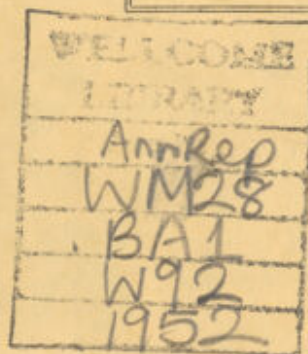 WELLCOME
LIBRARY
AnnRep
WM28
BA1
W92
1952